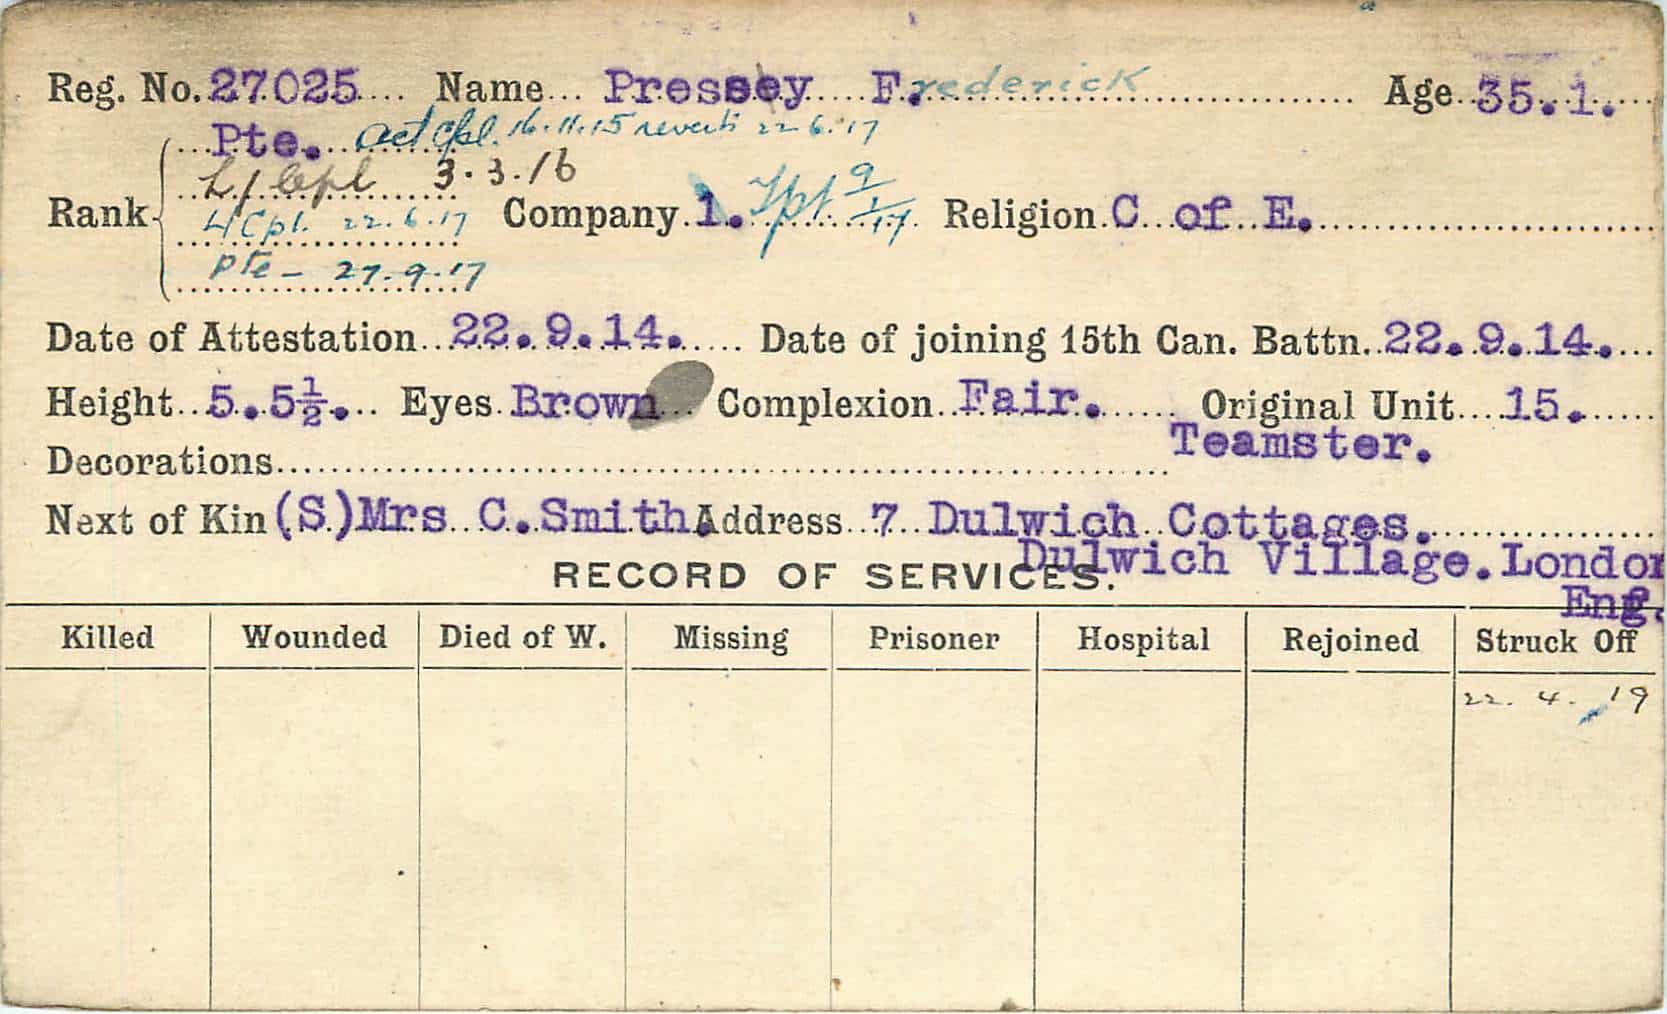 Reg. No. 27025 Name Pressey Frederick Age 35.1.
Pte. act Cpl. 16.11.15 reverts 22.6.17
L/Cpl 3.3.16
Rank L/Cpl. 22.6.17 Company 1. Tpt 9/1/17 Religion C of E.
Pte - 27.9.17
Date of Attestation 22.9.14. Date of joining 15th Can. Battn. 22.9.14.
Height 5.5½. Eyes Brown Complexion Fair. Original Unit 15.
Decorations Teamster.
Next of Kin (S.) Mrs C. Smith Address 7 Dulwich Cottages.
Dulwich Village. London
Eng.
RECORD OF SERVICES.
Killed Wounded Died of W. Missing Prisoner Hospital Rejoined Struck Off
22.4.19